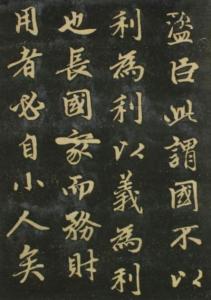 盜臣此謂國不以
利為利以義為利
也長國家而務財
用者必自小人矣